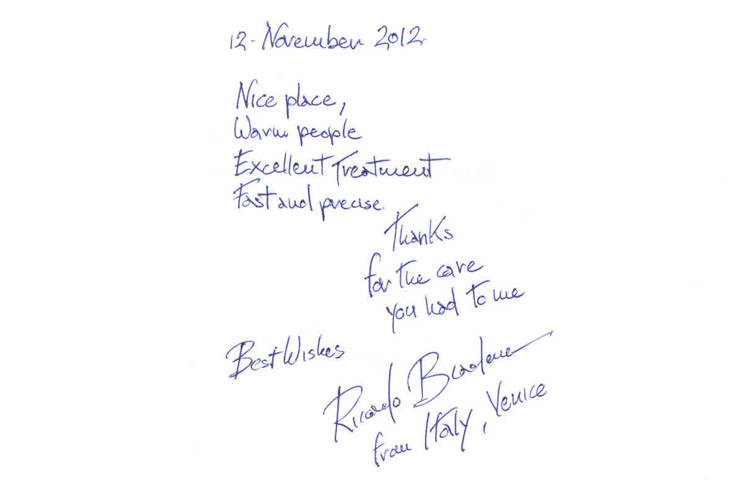 12. November 2012.
Nice place,
Warm people
Excellent Treatment
Fast and precise.
Thanks
for the care
you had to me
Best Wishes
Ricardo
from Italy, Venice